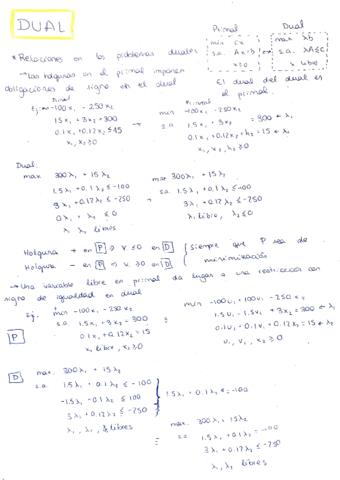 DUAL
Primal
min cx
s.a. Ax=b
x≥0
Dual
max λb
s.a. λA≤c
λ libre
* Relaciones en los problemas duales
- Las holguras en el primal imponen
obligaciones de signo en el dual
El dual del dual es
el primal.
Primal
Ej: min -100x₁ - 250x₂
1.5x₁ + 3x₂ = 300
0.1x₁ + 0.12x₂ ≤ 15
x₁, x₂ ≥ 0
Primal
min -100x₁ - 250x₂
s.a 1.5x₁ + 3x₂ = 300 ← λ₁
0.1x₁ + 0.12x₂ + h₂ = 15 ← λ₂
x₁, x₂, h₂ ≥ 0
Dual:
max 300λ₁ + 15λ₂
1.5λ₁ + 0.1λ₂ ≤ -100
3λ₁ + 0.12λ₂ ≤ -250
0λ₁ + λ₂ ≤ 0
λ₁ λ₂ libres
max 300λ₁ + 15λ₂
s.a. 1.5λ₁ + 0.1λ₂ ≤ -100
3λ₁ + 0.12λ₂ ≤ -250
λ₁ libre, λ₂ ≤ 0
Holgura + en P ⇒ V ≤ 0 en D
Holgura - en P ⇒ V ≥ 0 en D
siempre que P sea de
minimización
- Una variable libre en primal da lugar a una restricción con
signo de igualdad en dual
Ej. min -100x₁ - 250x₂
s.a 1.5x₁ + 3x₂ = 300
0.1x₁ + 0.12x₂ = 15
x₁ libre, x₂ ≥ 0
P
min -100u₁ + 100v₁ - 250x₂
1.5u₁ - 1.5v₁ + 3x₂ = 300 ← λ₁
0.1u₁ - 0.1v₁ + 0.12x₂ = 15 ← λ₂
u₁, v₁, x₂ ≥ 0
D
max. 300λ₁ + 15λ₂
s.a. 1.5λ₁ + 0.1λ₂ ≤ -100
-1.5λ₁ - 0.1λ₂ ≤ 100
3λ₁ + 0.12λ₂ ≤ -250
λ₁, λ₂ libres
1.5λ₁ + 0.1λ₂ = -100
max 300λ₁ + 15λ₂
s.a 1.5λ₁ + 0.1λ₂ = -100
3λ₁ + 0.12λ₂ ≤ -250
λ₁ λ₂ libres